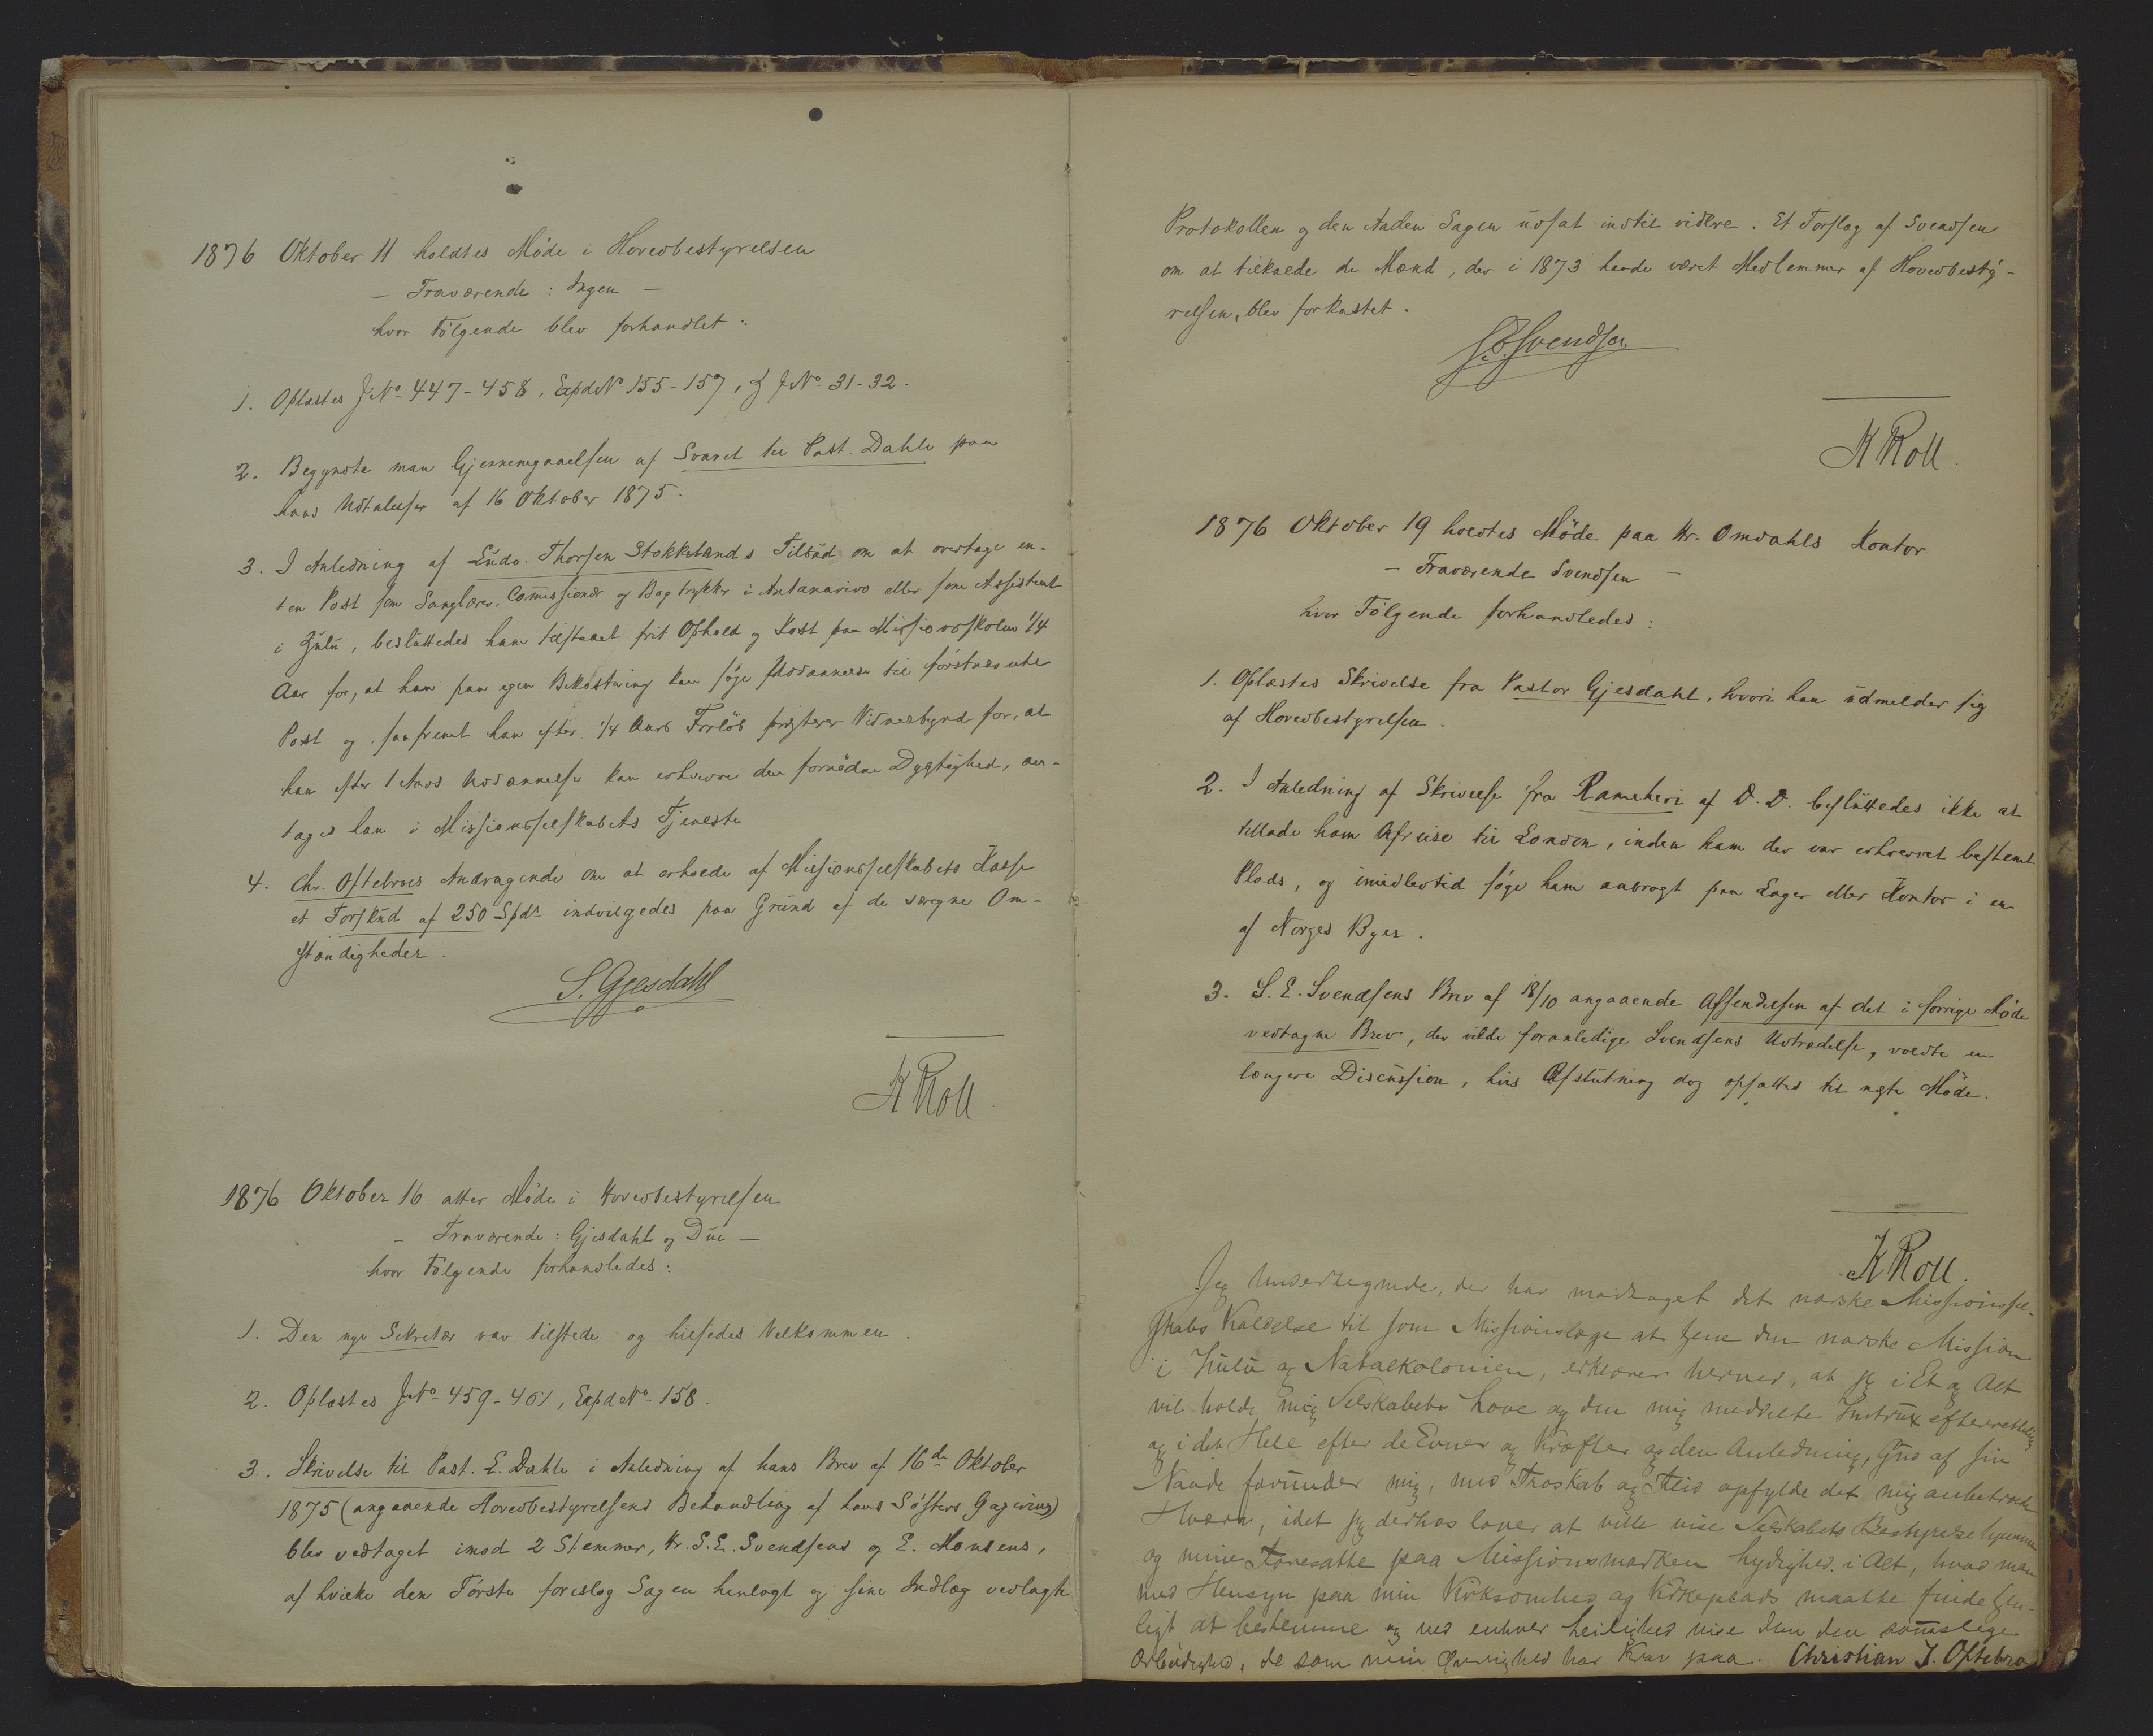 1876 Oktober 11 holdtes Møde i Hovedbestyrelsen
— Fraværende : Ingen —
hvor Følgende blev forhandlet :
1. Oplæstes JNo 447-458, ExpdNo 155-157, JNo 31-32.
2. Begyndte man Gjennemgaaelsen af Svaret til Past. Dahle paa
hans Udtalelser af 16 Oktober 1875.
3. I Anledning af Ludv. Thorsen Stokkelands Tilbud om at overtage en-
ten Post som Sanglærer, Comissionær og Bogtrykker i Antanarivo eller som Assistent
i Zulu, besluttedes ham tilstaaet frit Ophold og Kost paa Missionsskolen 1/4
Aar for, at han paa egen Bekostning kan søge Uddannelse til førstnævnte
Post og saafremt han efter 1/4 Aars Forløb Vidnesbyrd for, at
han efter 1 Aars Uddannelse kan erhverve den fornødne Dygtighed, an-
tages han i Missionsselskabets Tjeneste
4. Chr. Oftebroes Andragende om at erholde af Missionsselskabets Kasse
et Forskud af 250 Spdr indvilgedes paa Grund af de særegne Om-
stændigheder.
S. Gjesdahl
K Roll.
1876 Oktober 16 atter Møde i Hovedbestyrelsen
— Fraværende : Gjesdahl og Due —
hvor Følgende forhandledes :
1. Den nye Sekretær var tilstede og hilsedes Velkommen.
2. Oplæstes JNo 459-461, ExpdNo 158.
3. Skrivelse til Past. L. Dahle i Anledning af hans Brev af 16de Oktober
1875 (angaaende Hovedbestyrelsens Behandling af hans Søsters Gagering)
blev vedtaget imod 2 Stemmer, Hr. S.E. Svendsens og E. Hansens,
af hvilke den Første foreslog Sagen henlagt og sine Indlæg vedlagte
Protokollen og den Anden Sagen udsat indtil videre. Et Forslag af Svendsen
om at tilkalde de Mænd, der i 1873 havde været Medlemmer af Hovedbesty-
relsen, blev forkastet.
S.E. Svendsen
K Roll.
1876 Oktober 19 holdtes Møde paa Hr. Omdahls Kontor
— Fraværende Svendsen —
hvor Følgende forhandledes :
1. Oplæstes Skrivelse fra Pastor Gjesdahl, hvori han udmelder sig
af Hovedbestyrelsen.
2. I Anledning af Skrivelse fra Rameheri af D.D. besluttedes ikke at
tillade ham Afreise til London, inden ham der var erhvervet bestemt
Plads, og imidlertid søge ham anbragt paa Lager eller Kontor i en
af Norges Byer.
3. S.E. Svendsens Brev af 18/10 angaaende Afsendelsen af det i forrige Møde
vedtagne Brev, der vilde foranledige Svendsens Udtrædelse, voldte en
længere Discussion, hvis Afslutning dog opsattes til næste Møde.
K Roll.
Jeg Undertegnede, der har modtaget det norske Missionssel-
skabs Kaldelse til som Missionslæge at tjene den norske Mission
i Zulu og Natalkolonien, erklærer herved, at jeg i Et og Alt
vil holde mig Selskabets Love og den mig meddelte Instrux efterrettelig
og i det Hele efter de Evner og Kræfter og den Anledning, Gud af sin
Naade forunder mig, med Troskab og Flid opfylde det mig anbetroede
Hverv, idet jeg derhos lover at ville vise Selskabets Bestyrelse hjemme
og mine Foresatte paa Missionsmarken Lydighed i Alt, hvad man
med Hensyn paa min Virksomhed og Virkeplads maatte finde tjen-
ligt at bestemme og ved enhver Leilighed vise dem den sømmelige
Ærbødighed, de som min Øvrighed har Krav paa. Christian J. Oftebro